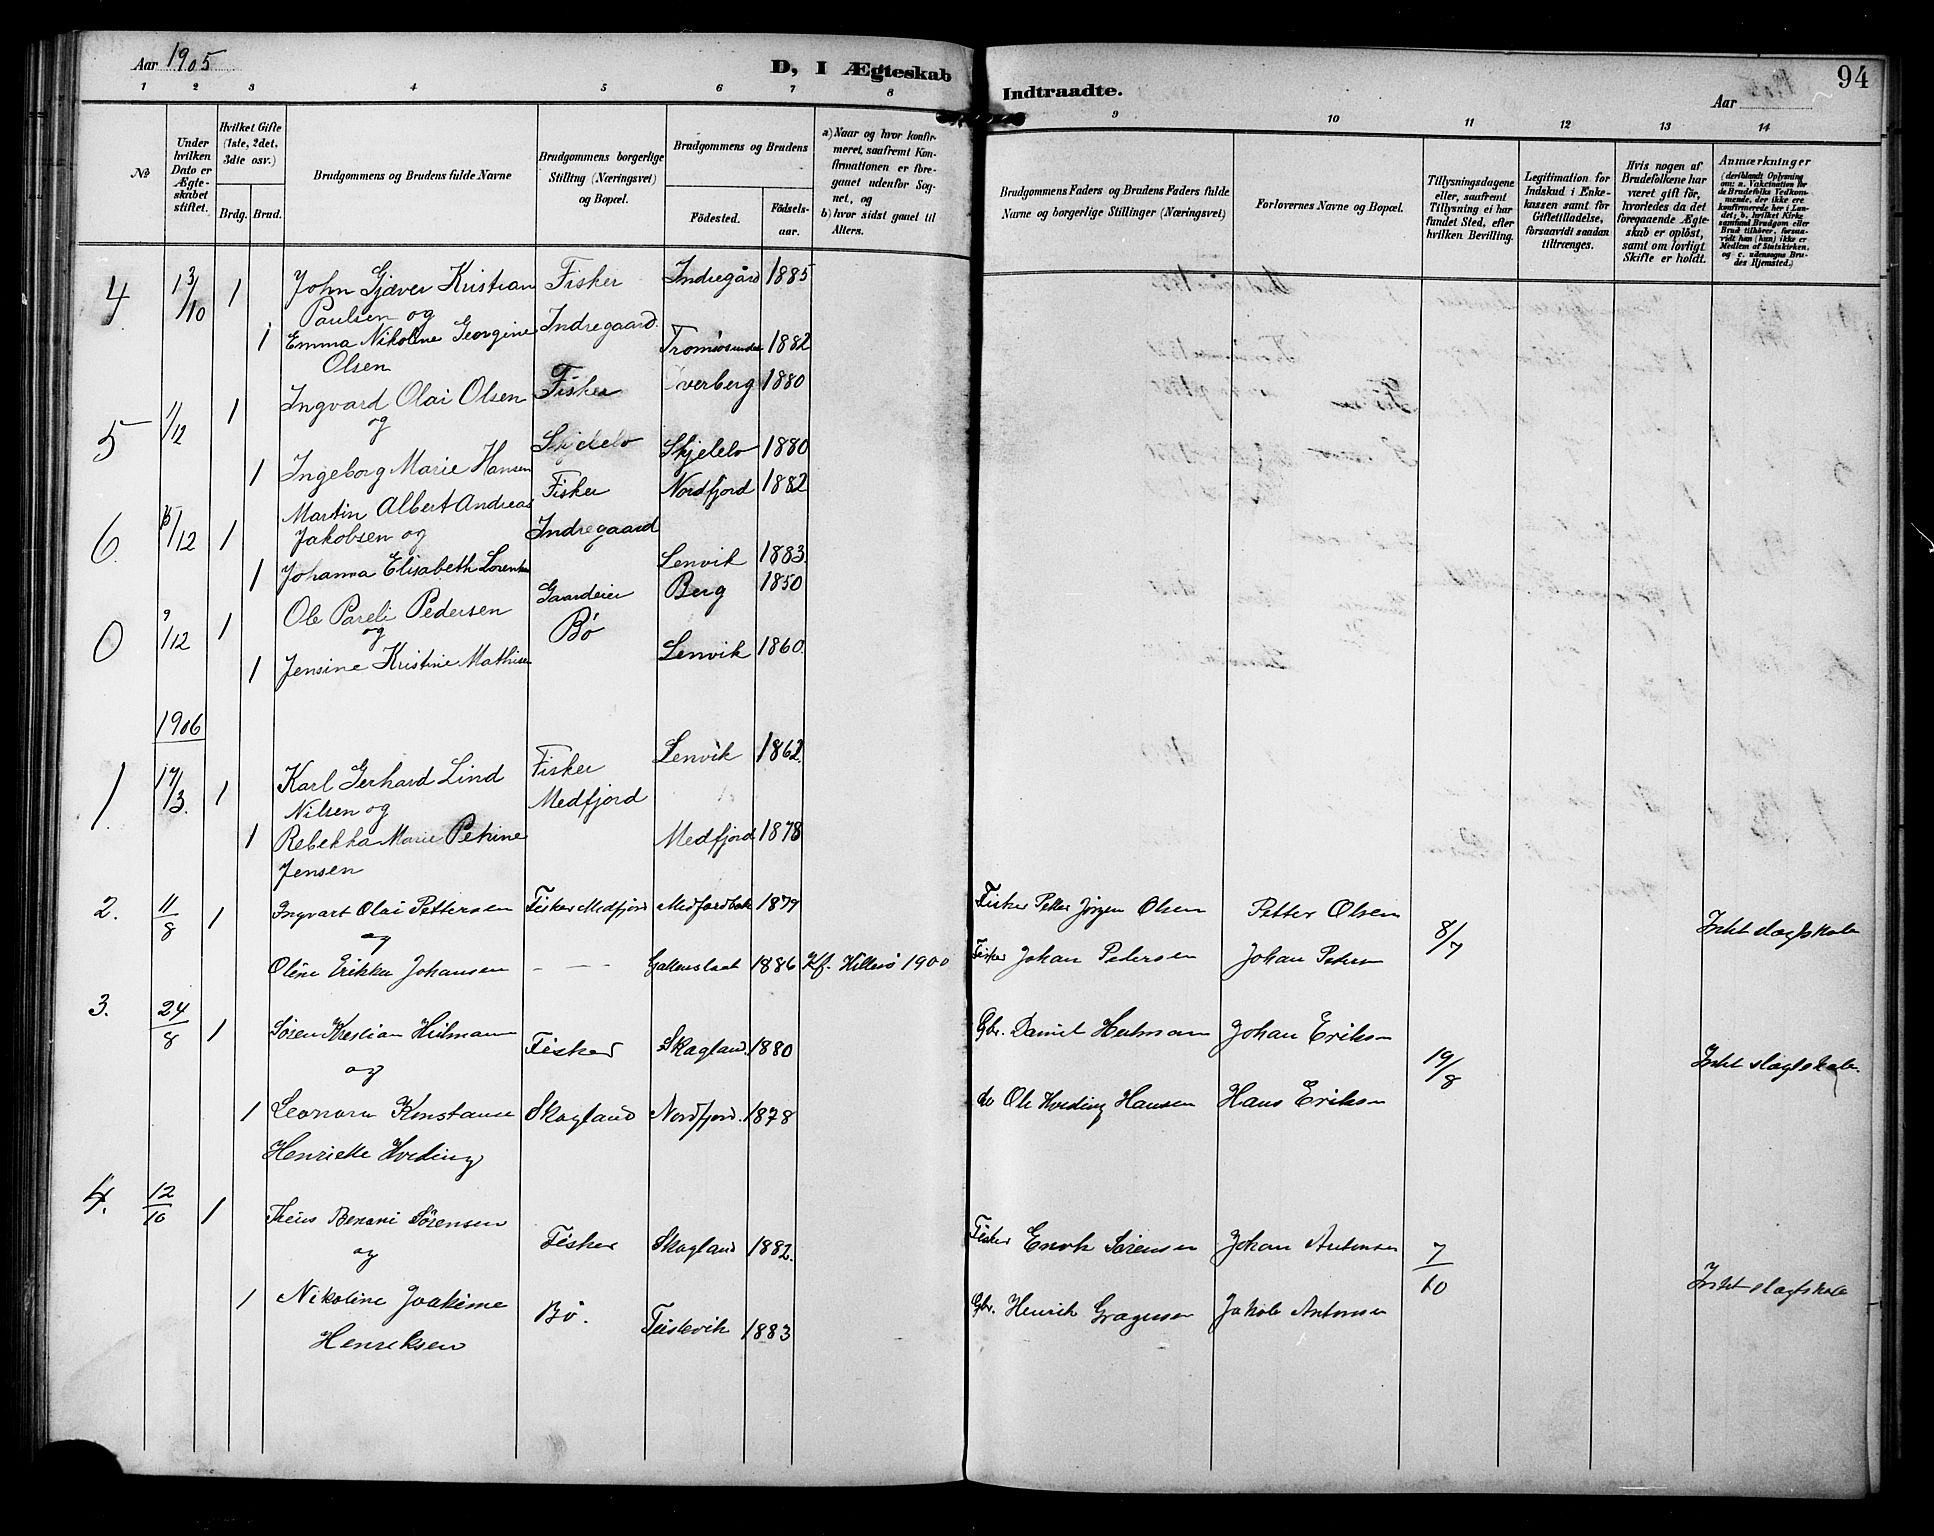 Aar 1905
D, I Ægteskab Indtraadte.
Aar
94
1 2 3 4 5 6 7 8 9 10 11 12 13 14
No
Under hvilken Dato er Ægteskabet stiftet.
Hvilket Gifte (1ste, 2det, 3die osv.)
Brdg. Brud.
Brudgommens og Brudens fulde Navne
Brudgommens borgerlige Stilling (Næringsvei) og Bopæl.
Brudgommens og Brudens
Fødested.
Fødselsaar.
a) Naar og hvor konfirmeret, saafremt Konfirmationen er foregaaet udenfor Sognet, og
b) hvor sidst gaaet til Alters.
Brudgommens Faders og Brudens Faders fulde Navne og borgerlige Stillinger (Næringsvei)
Forlovernes Navne og Bopæl.
Tillysningsdagene eller, saafremt Tillysning ei har fundet Sted, efter hvilken Bevilling.
Legitimation for Indskud i Enkekassen samt for Giftetilladelse, forsaavidt saadan tiltrænges.
Hvis nogen af Brudefolkene har været gift før, hvorledes da det foregaaende Ægteskab er opløst, samt om lovligt Skifte er holdt.
Anmærkninger (deriblandt Oplysning om: a. Vaccination for de Brudefolks Vedkommende, der ikke ere konfirmerede her i Landet; b. hvilket Kirkesamfund Brudgom eller Brud tilhører, forsaavidt han (hun) ikke er Medlem af Statskirken, og c. udensogns Brudes Hjemsted.)
4. 13/10 1 John Gjæver Kristian Fisker Indregård 1885
Paulsen og
1 Emma Nikoline Georgine Indregaard. Tromsøsundet 1882
Olsen
5 1/12 1 Ingvard Olai Olsen Fisker verberg 1880
og
1 Ingeborg Marie Hansen Skjelelv Skjelelv 1880
6. 15/12 1 Martin Albert Andreas Fisker Nordfjord 1882
Jakobsen og Indregaard
1 Johanna Elisabeth Lorentsen Lenvik 1883.
0 9/12 1 Ole Pareli Pedersen Gaardeier Berg 1850
og Bø
1 Jensine Kristine Mathisen Lenvik 1860.
1906
1. 17/3. 1 Karl Gerhard Lind Fisker Lenvik 1862.
Nilsen og Medfjord
1 Rebekka Marie Petrine Medfjord 1878
Jensen
2. 11/8 1 Ingvart Olai Pettersen Fisker Medfjord 1879 Fisker Petter Jørgen Olsen Petter Olsen 8/7 Intet slagtskab
og
Oline Erikka Johansen — — 1886 Kf. Hillesø 1900 Fisker Johan Petersen Johan Peters
3. 24/8 1 Søren Kristian Heitmann Fisker Skagland. 1880 Gbr. Daniel Heitmann Johan Eriksen 19/8 Intet slagtskab.
og
1 Leonora Konstanse Skagland Nordfjord. 1878 do Ole Hveding Hansen Hans Eriksen
Henriette Hveding
4. 12/10 1 Benoni Sørensen Fisker Skagland 1882. Fisker Enok Sørensen Johan Antonsen 7/10 Intet slagtskab
og
1 Nikoline Joakime Bø. 1883 Gbr. Henrik Jakob Antonsen
Henriksen